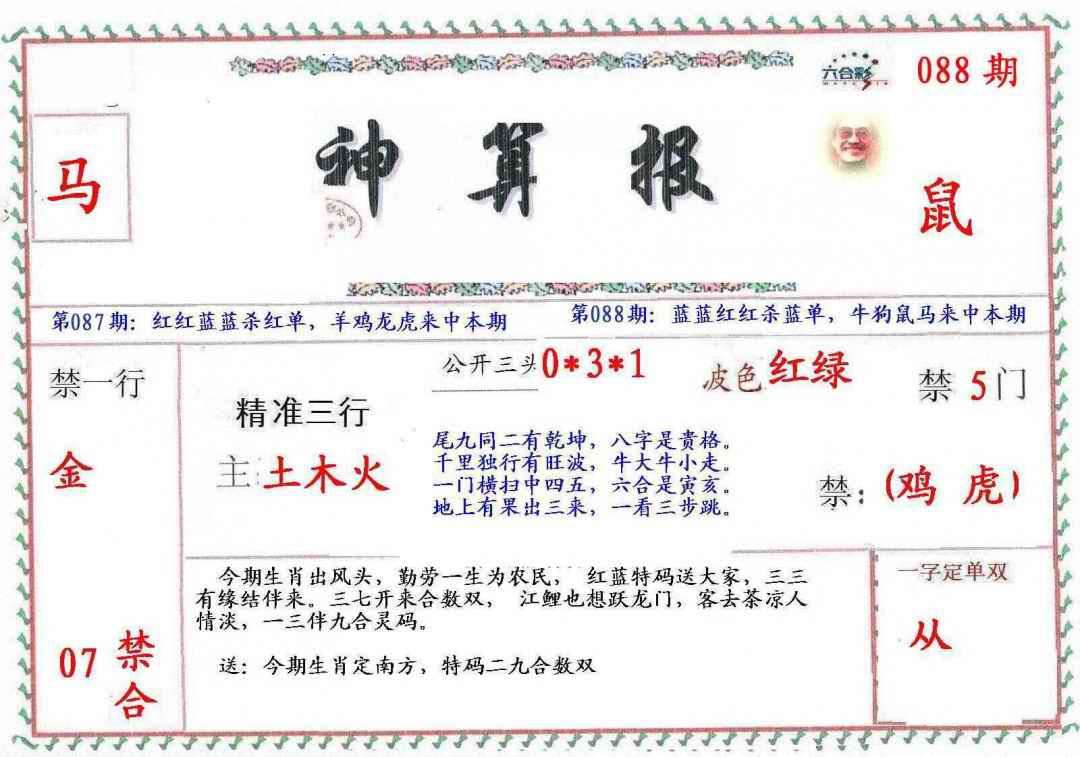 六合彩
088期
马
神算报
鼠
第087期：红红蓝蓝杀红单，羊鸡龙虎来中本期
第088期：蓝蓝红红杀蓝单，牛狗鼠马来中本期
禁一行
金
07
禁
合
精准三行
主:土木火
公开三头0*3*1
波色红绿
禁5门
尾九同二有乾坤，八字是贵格。
千里独行有旺波，牛大牛小走。
一门横扫中四五，六合是寅亥。
地上有果出三来，一看三步跳。
禁：(鸡 虎)
今期生肖出风头，勤劳一生为农民， 红蓝特码送大家，三三
有缘结伴来。三七开来合数双， 江鲤也想跃龙门，客去茶凉人
情淡，一三伴九合灵码。
送：今期生肖定南方，特码二九合数双
一字定单双
从